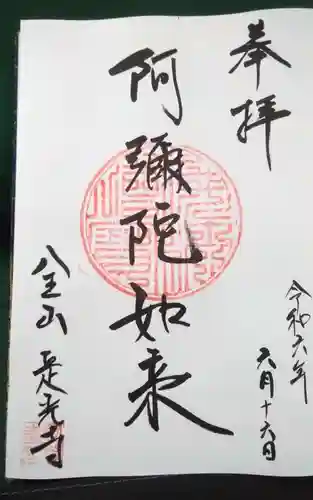 奉拝
令和六年
六月十六日
阿彌陀如来
山
寺